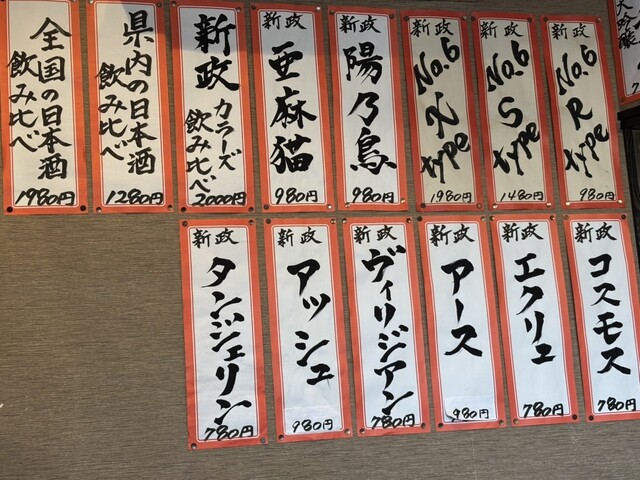 大吟醸
新政
No.6
R
type
980円
新政
No.6
S
type
1480円
新政
No.6
X
type
1980円
新政
陽乃鳥
980円
新政
亜麻猫
980円
新政
カラーズ
飲み比べ
2000円
県内の日本酒
飲み比べ
1280円
全国の日本酒
飲み比べ
1980円
新政
コスモス
780円
新政
エクリュ
780円
新政
アース
980円
新政
ヴィリジアン
780円
新政
アッシュ
980円
新政
タンジェリン
780円